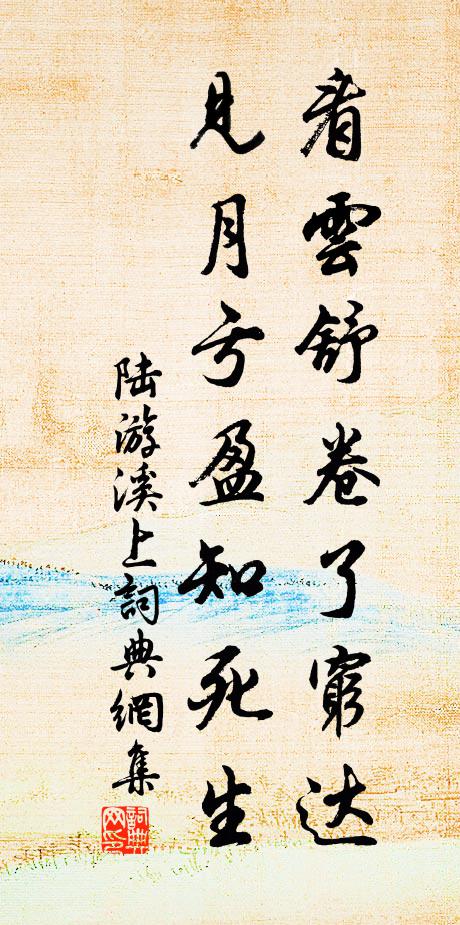 看雲舒卷了窮达
見月亏盈知死生
陆游溪上詞典網集
詞典
网印